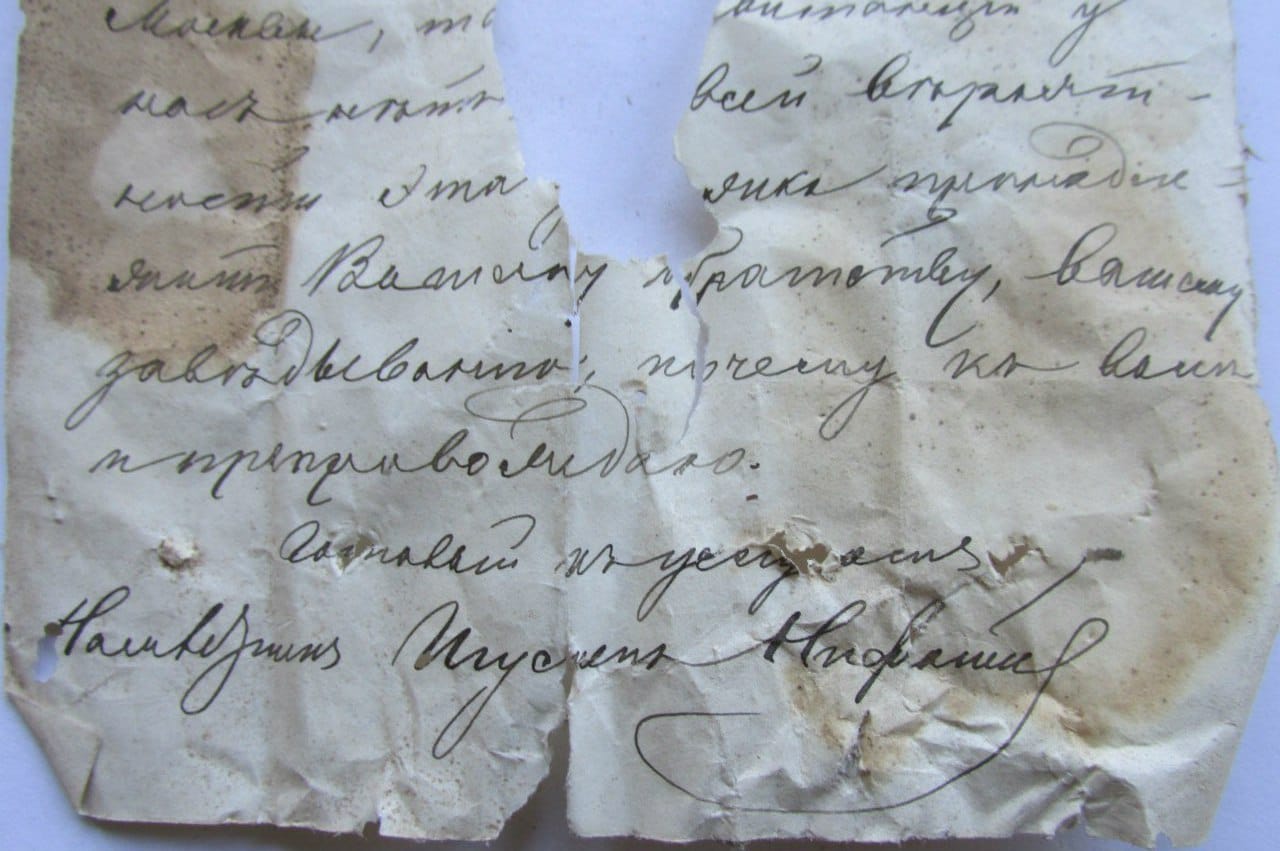 Москвы, то
насъ нѣтъ всей вѣроят-
ности эта принадле-
житъ Вашему братству, вашему
завѣдыванію, почему къ вамъ
и препровождаю.
Готовый къ услугамъ
Игуменъ Нифонтъ